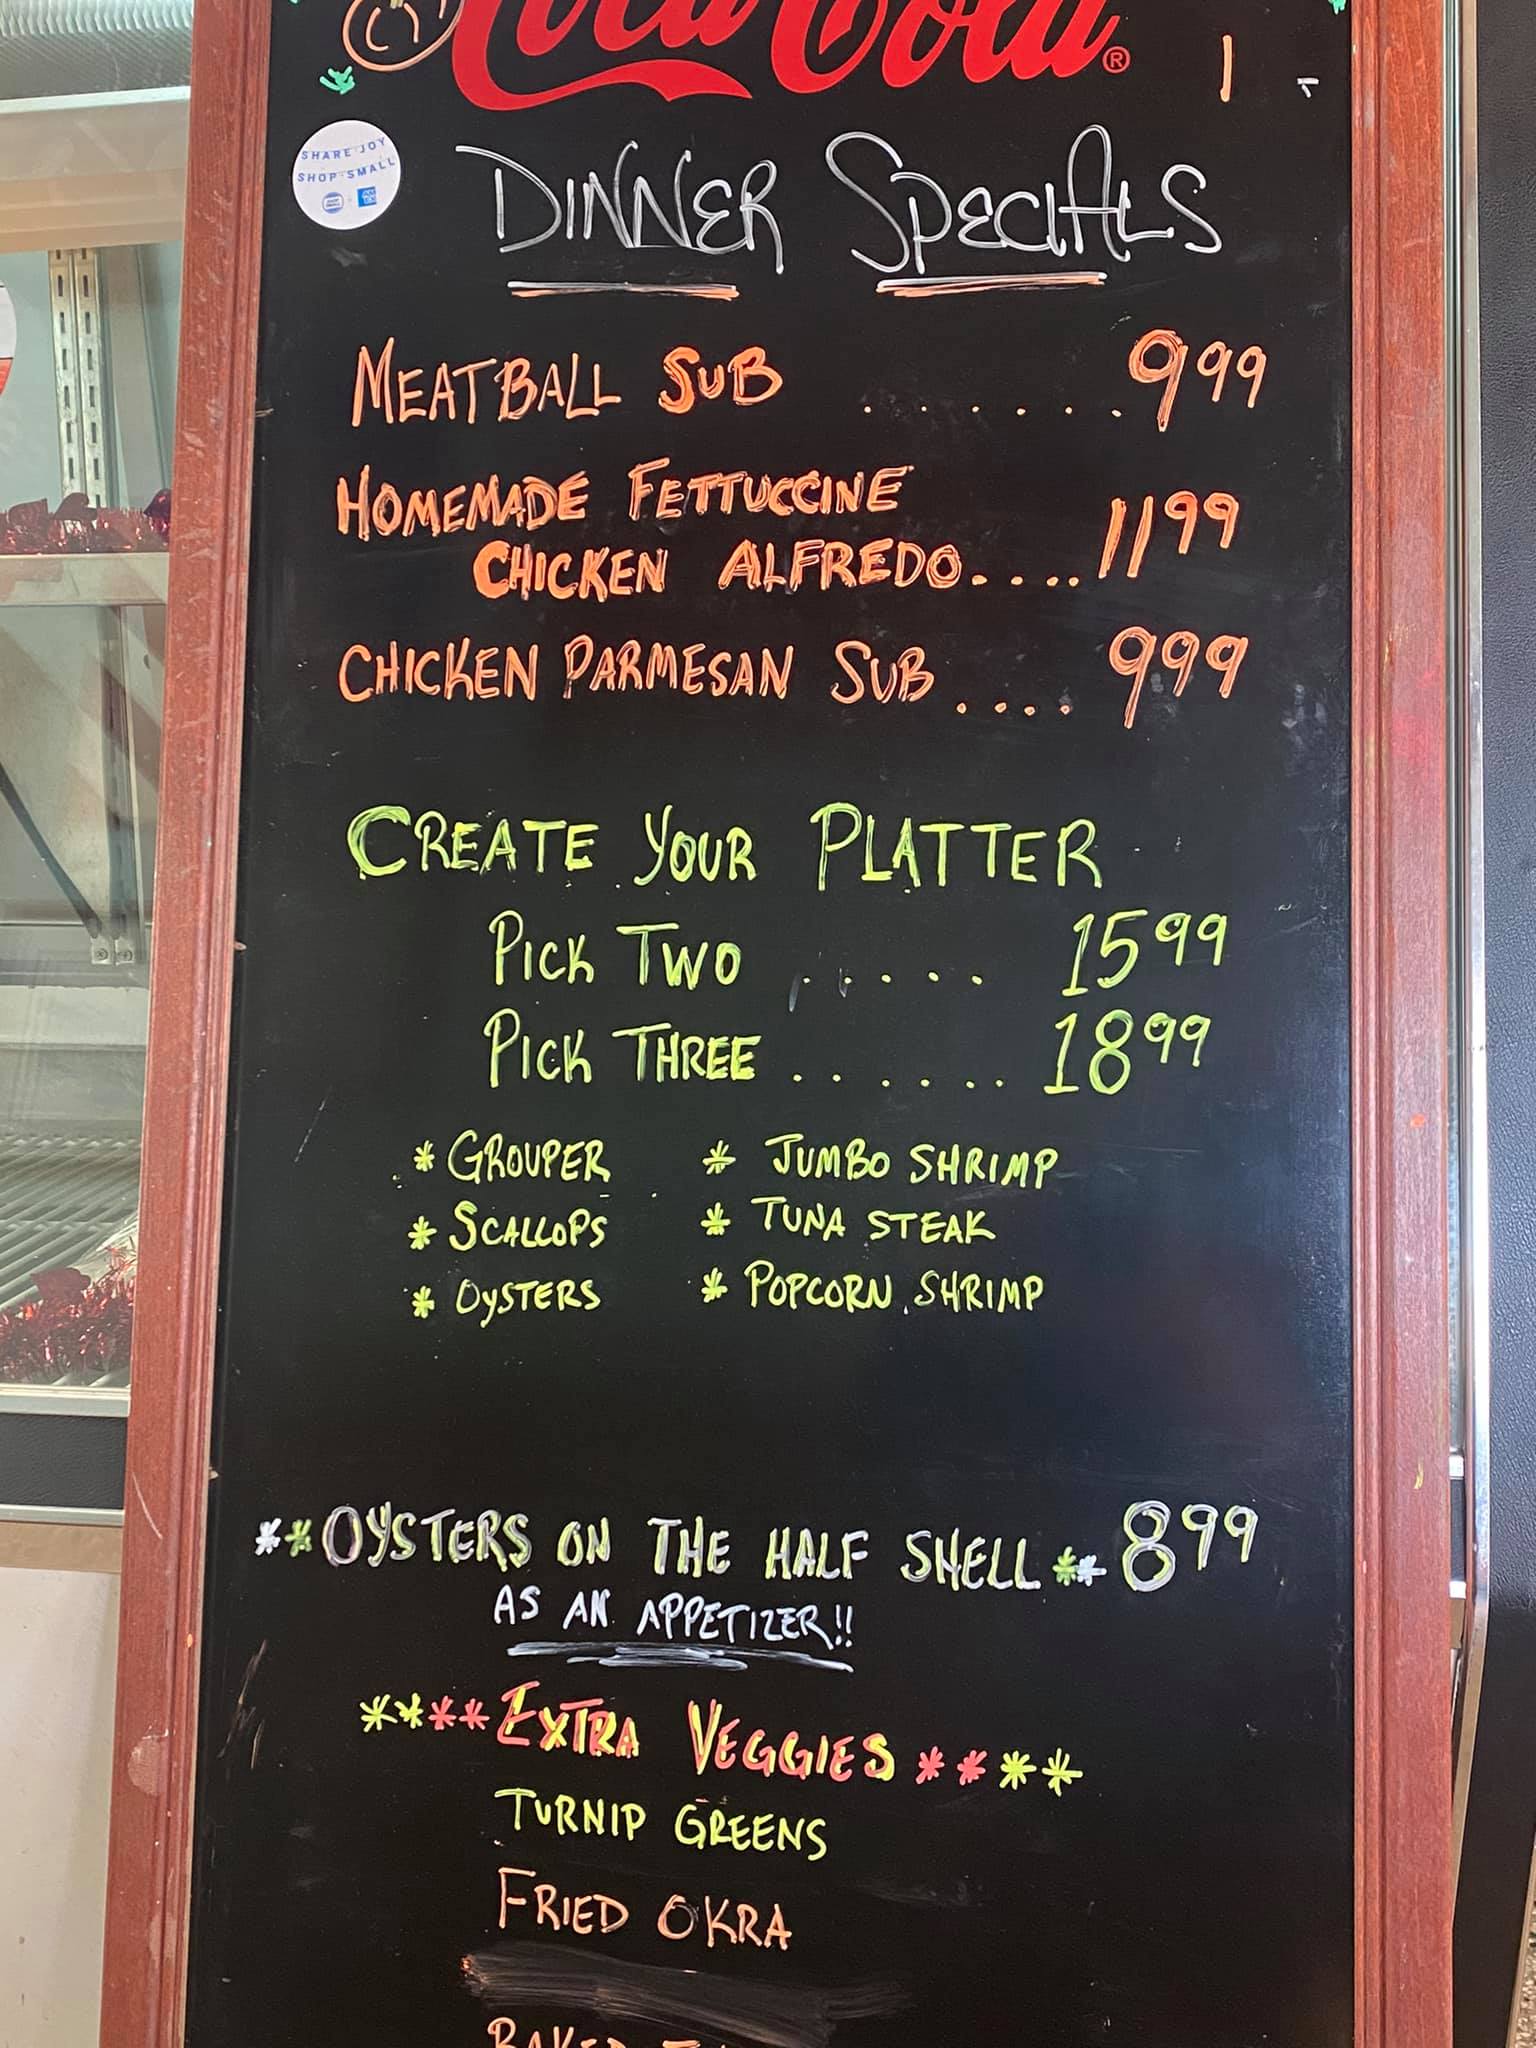 Coca-Cola®
SHARE JOY
SHOP SMALL
DINNER SPECIALS
MEATBALL SUB ....... 9 99
HOMEMADE FETTUCCINE
CHICKEN ALFREDO.... 11 99
CHICKEN PARMESAN SUB .... 9 99
CREATE YOUR PLATTER
PICK TWO ..... 15 99
PICK THREE ...... 18 99
* GROUPER * JUMBO SHRIMP
* SCALLOPS * TUNA STEAK
* OYSTERS * POPCORN SHRIMP
**OYSTERS ON THE HALF SHELL** 8 99
AS AN APPETIZER!!
****EXTRA VEGGIES****
TURNIP GREENS
FRIED OKRA
BAKED